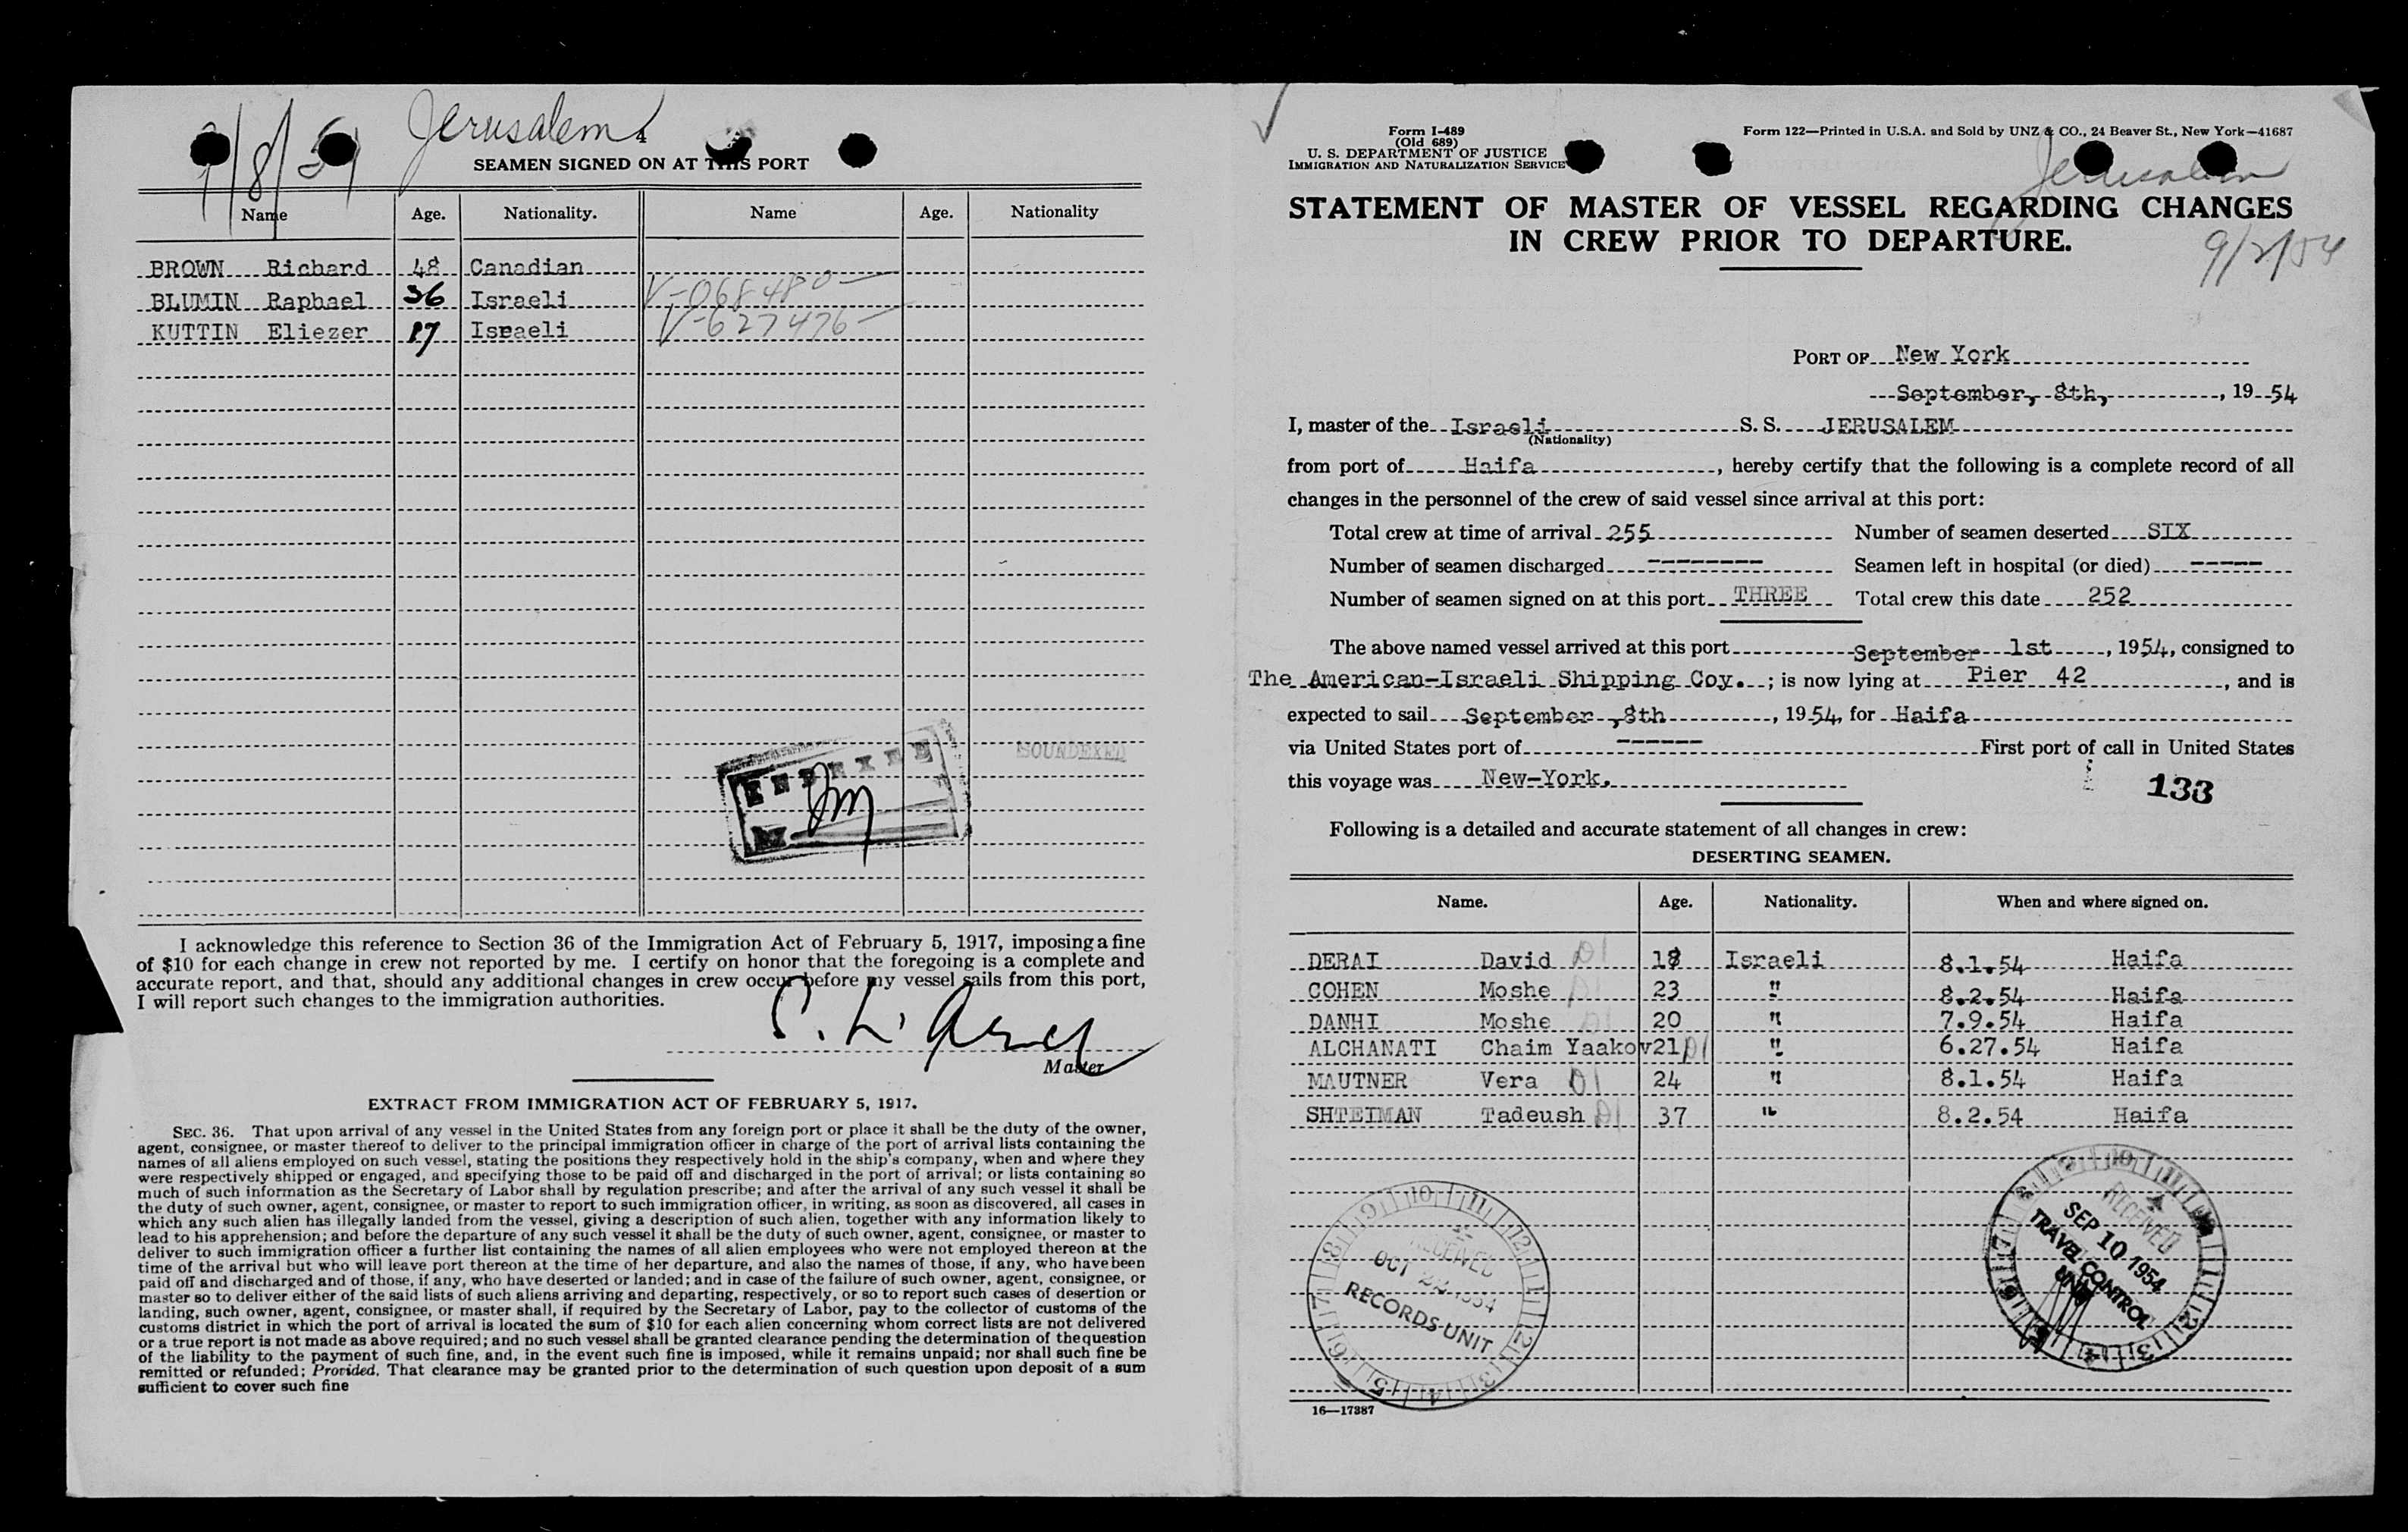 9/8/54 Jerusalem
4
SEAMEN SIGNED ON AT THIS PORT
Name Age. Nationality. Name Age. Nationality
BROWN Richard 48 Canadian
BLUMIN Raphael 36 Israeli V-068480
KUTTIN Eliezer Israeli V-627476
SOUNDEXED
INDEXED
I acknowledge this reference to Section 36 of the Immigration Act of February 5, 1917, imposing a fine
of $10 for each change in crew not reported by me. I certify on honor that the foregoing is a complete and
accurate report, and that, should any additional changes in crew occur before my vessel sails from this port,
I will report such changes to the immigration authorities.
Master
EXTRACT FROM IMMIGRATION ACT OF FEBRUARY 5, 1917.
SEC. 36. That upon arrival of any vessel in the United States from any foreign port or place it shall be the duty of the owner,
agent, consignee, or master thereof to deliver to the principal immigration officer in charge of the port of arrival lists containing the
names of all aliens employed on such vessel, stating the positions they respectively hold in the ship's company, when and where they
were respectively shipped or engaged, and specifying those to be paid off and discharged in the port of arrival; or lists containing so
much of such information as the Secretary of Labor shall by regulation prescribe; and after the arrival of any such vessel it shall be
the duty of such owner, agent, consignee, or master to report to such immigration officer, in writing, as soon as discovered, all cases in
which any such alien has illegally landed from the vessel, giving a description of such alien, together with any information likely to
lead to his apprehension; and before the departure of any such vessel it shall be the duty of such owner, agent, consignee, or master to
deliver to such immigration officer a further list containing the names of all alien employees who were not employed thereon at the
time of the arrival but who will leave port thereon at the time of her departure, and also the names of those, if any, who have been
paid off and discharged and of those, if any, who have deserted or landed; and in case of the failure of such owner, agent, consignee, or
master so to deliver either of the said lists of such aliens arriving and departing, respectively, or so to report such cases of desertion or
landing, such owner, agent, consignee, or master shall, if required by the Secretary of Labor, pay to the collector of customs of the
customs district in which the port of arrival is located the sum of $10 for each alien concerning whom correct lists are not delivered
or a true report is not made as above required; and no such vessel shall be granted clearance pending the determination of the question
of the liability to the payment of such fine, and, in the event such fine is imposed, while it remains unpaid; nor shall such fine be
remitted or refunded; Provided, That clearance may be granted prior to the determination of such question upon deposit of a sum
sufficient to cover such fine
Form I-489
(Old 689)
U. S. DEPARTMENT OF JUSTICE
IMMIGRATION AND NATURALIZATION SERVICE
Form 122—Printed in U.S.A. and Sold by UNZ & CO., 24 Beaver St., New York—41687
Jerusalem
STATEMENT OF MASTER OF VESSEL REGARDING CHANGES
IN CREW PRIOR TO DEPARTURE.
9/2/54
PORT OF New York
September, 8th, , 19 54
I, master of the Israeli S. S. JERUSALEM
(Nationality)
from port of Haifa , hereby certify that the following is a complete record of all
changes in the personnel of the crew of said vessel since arrival at this port:
Total crew at time of arrival 255 Number of seamen deserted SIX
Number of seamen discharged -------- Seamen left in hospital (or died) -----
Number of seamen signed on at this port THREE Total crew this date 252
The above named vessel arrived at this port September 1st , 1954, consigned to
The American-Israeli Shipping Coy. ; is now lying at Pier 42 , and is
expected to sail September ,8th , 1954, for Haifa
via United States port of ------ First port of call in United States
this voyage was New-York.
133
Following is a detailed and accurate statement of all changes in crew:
DESERTING SEAMEN.
Name. Age. Nationality. When and where signed on.
DERAI David D1 18 Israeli 8.1.54 Haifa
COHEN Moshe D1 23 " 8.2.54 Haifa
DANHI Moshe D1 20 " 7.9.54 Haifa
ALCHANATI Chaim Yaakov 21 D1 " 6.27.54 Haifa
MAUTNER Vera D1 24 " 8.1.54 Haifa
SHTEIMAN Tadeush D1 37 " 8.2.54 Haifa
RECEIVED
OCT 1954
RECORDS UNIT
RECEIVED
SEP 10 1954
TRAVEL CONTROL
UNIT
16—17387